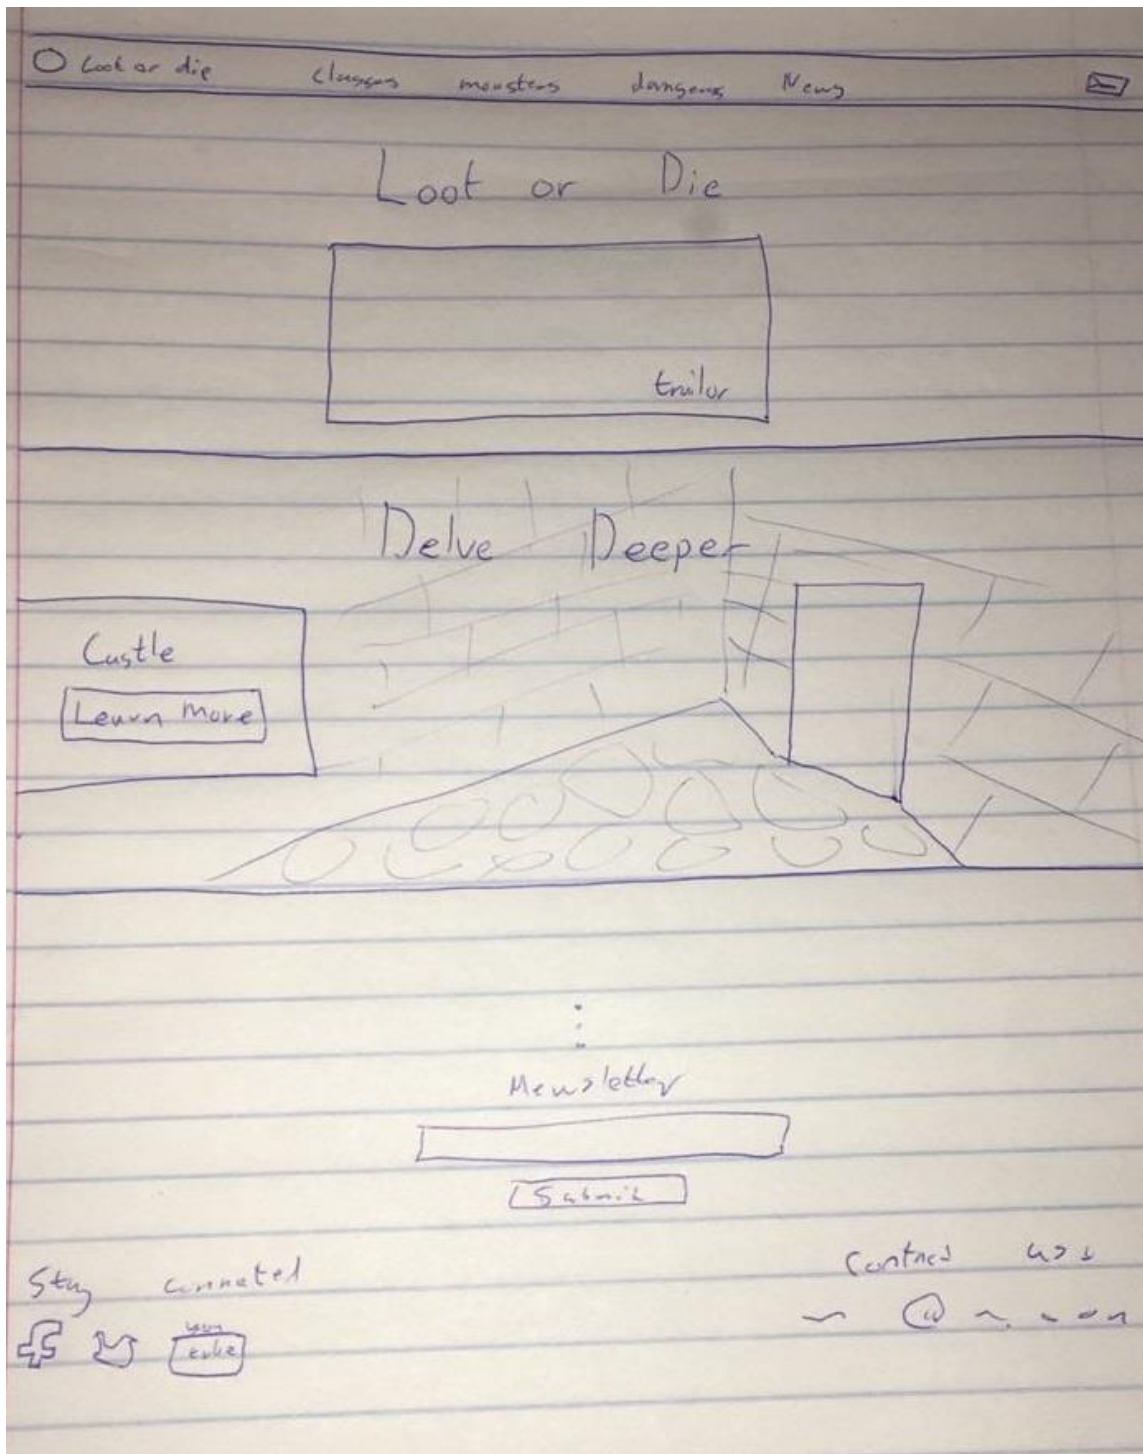 Loot or die classes monsters dangers News
Loot or Die
trailor
Delve Deeper
Castle
Learn More
Newsletter
Submit
Stay connated
Contact us
You
tube
@